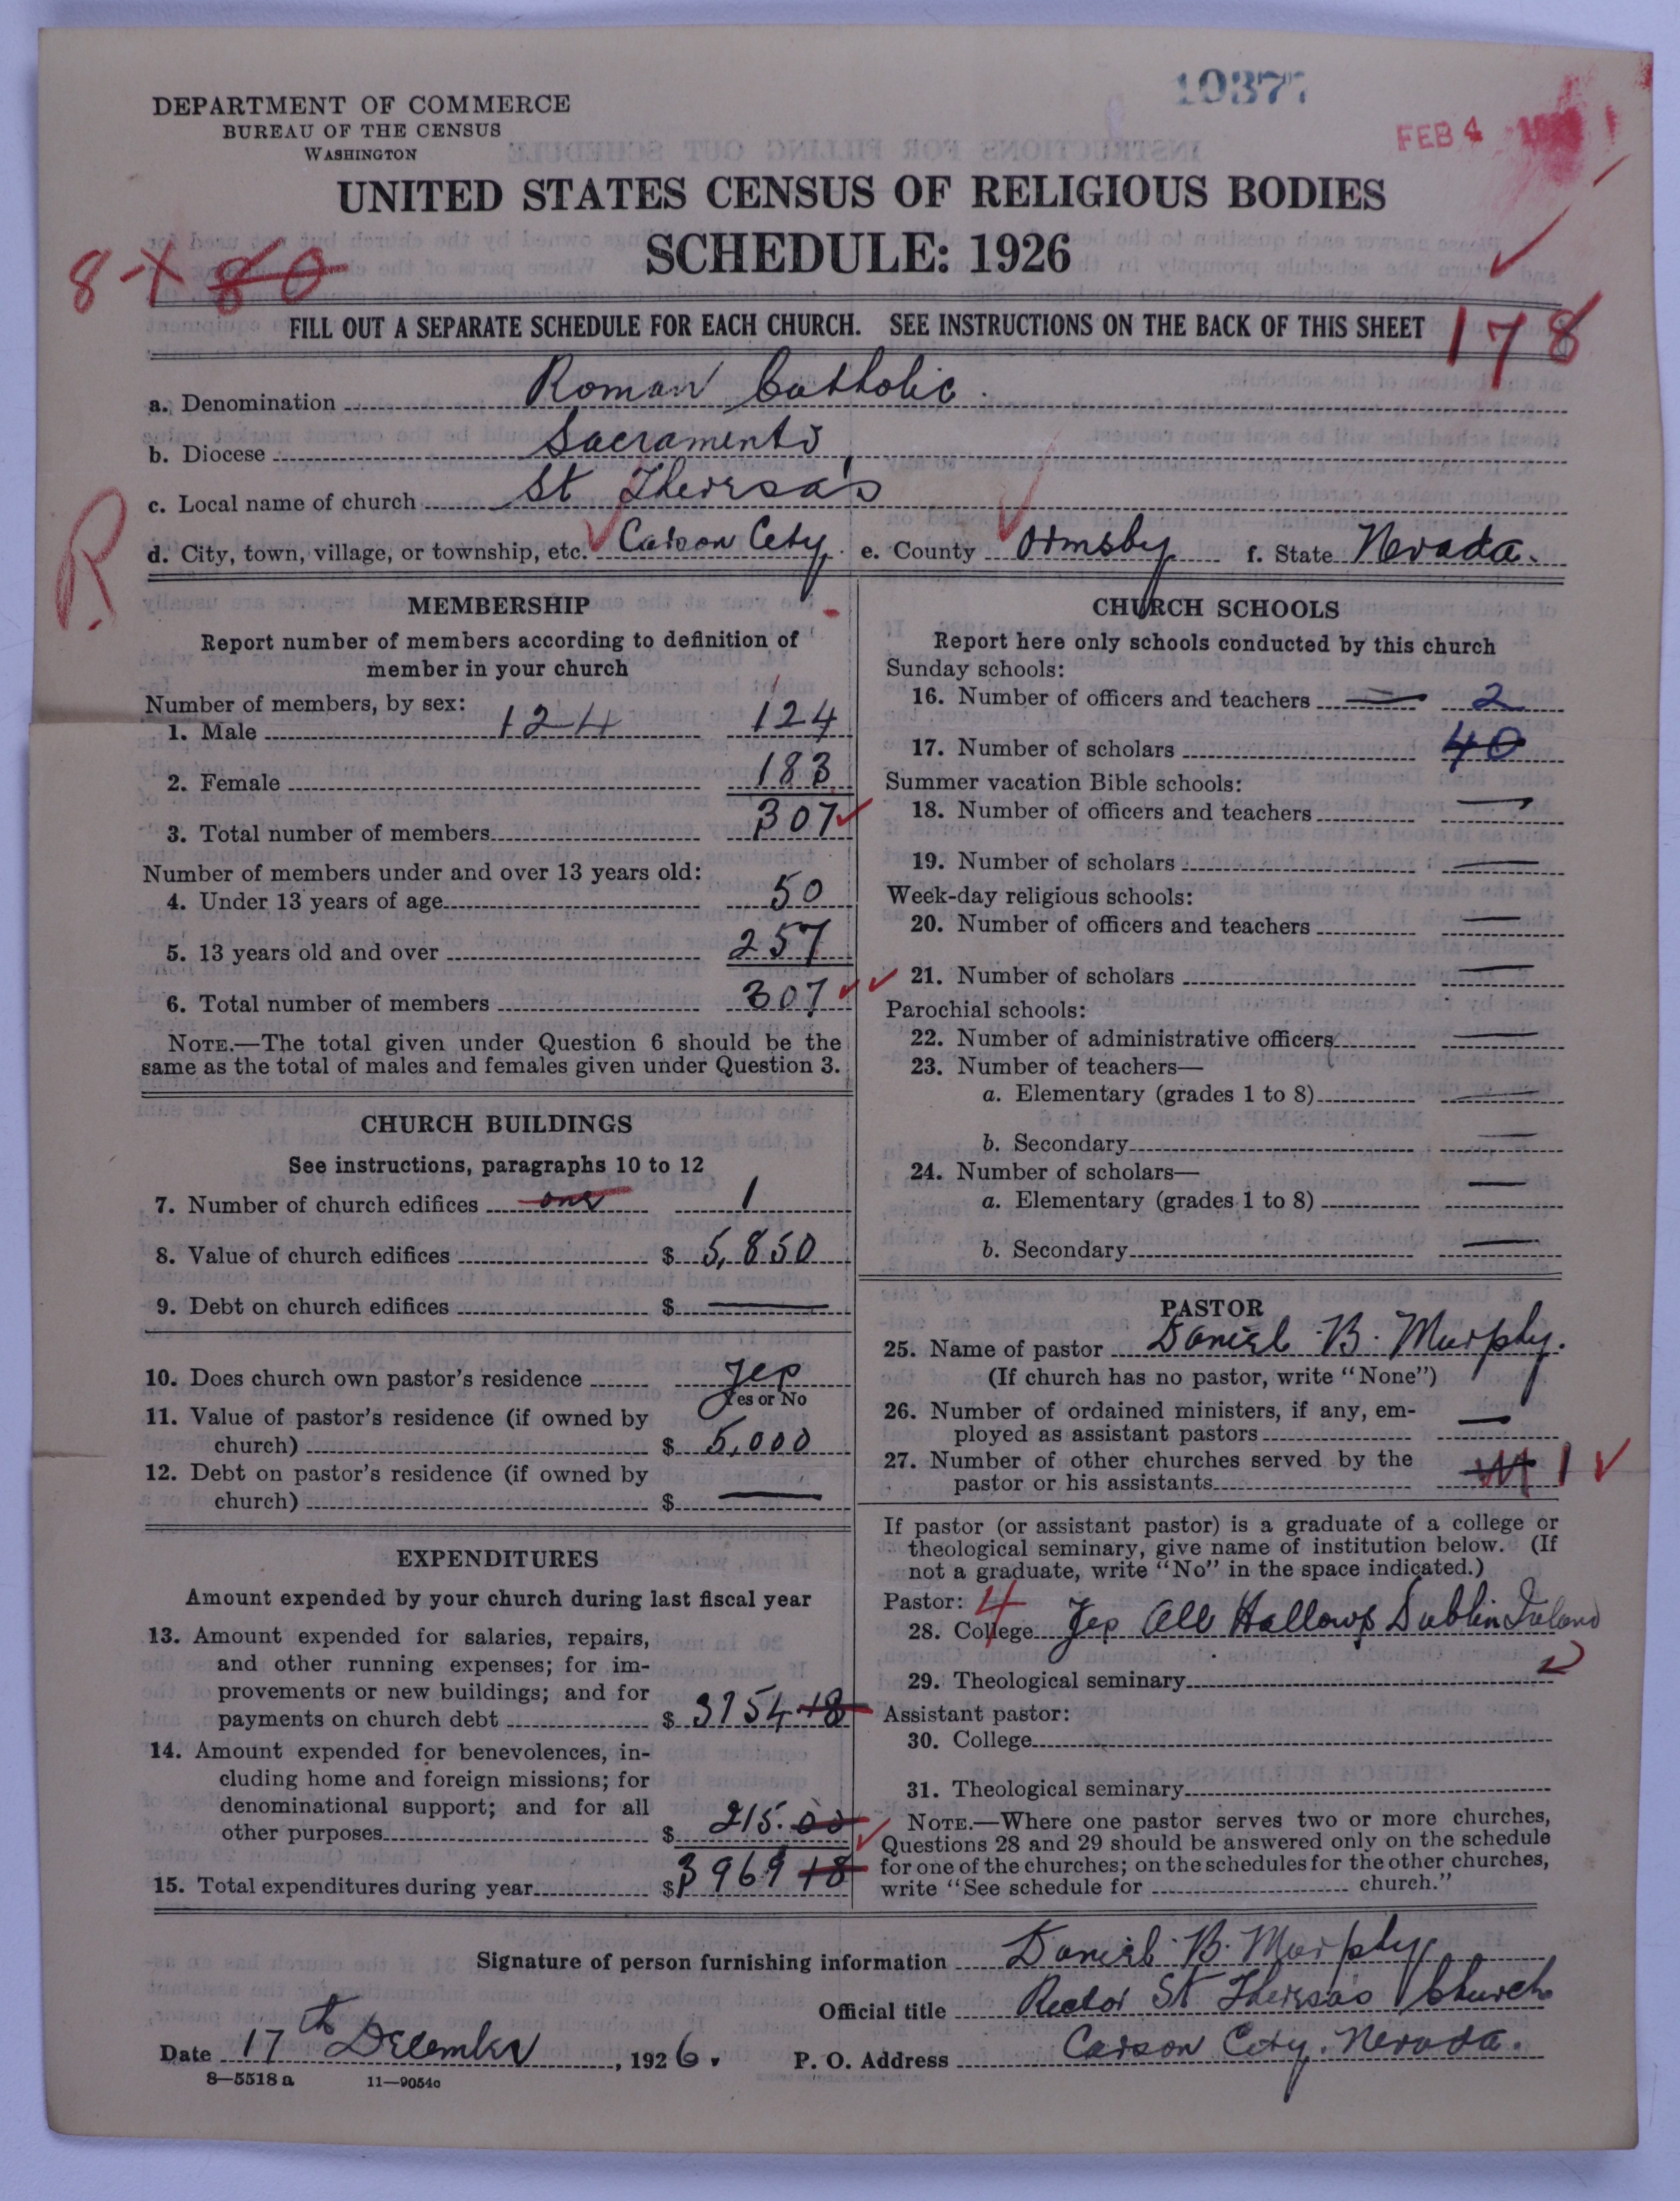 DEPARTMENT OF COMMERCE
BUREAU OF THE CENSUS
WASHINGTON
10377
FEB 4
UNITED STATES CENSUS OF RELIGIOUS BODIES
SCHEDULE: 1926
8 X 80
FILL OUT A SEPARATE SCHEDULE FOR EACH CHURCH. SEE INSTRUCTIONS ON THE BACK OF THIS SHEET
178
a. Denomination Roman Catholic.
b. Diocese Sacramento
c. Local name of church St Theresa's
R.
d. City, town, village, or township, etc. Carson City. e. County Ormsby f. State Nevada.
MEMBERSHIP
Report number of members according to definition of
member in your church
Number of members, by sex:
1. Male 124 124
2. Female 183
3. Total number of members 307
Number of members under and over 13 years old:
4. Under 13 years of age 50
5. 13 years old and over 257
6. Total number of members 307
NOTE.—The total given under Question 6 should be the
same as the total of males and females given under Question 3.
CHURCH BUILDINGS
See instructions, paragraphs 10 to 12
7. Number of church edifices one 1
8. Value of church edifices $ 5,850
9. Debt on church edifices $ —
10. Does church own pastor's residence Yes
Yes or No
11. Value of pastor's residence (if owned by
church) $ 5,000
12. Debt on pastor's residence (if owned by
church) $ —
EXPENDITURES
Amount expended by your church during last fiscal year
13. Amount expended for salaries, repairs,
and other running expenses; for im-
provements or new buildings; and for
payments on church debt $ 3754 18
14. Amount expended for benevolences, in-
cluding home and foreign missions; for
denominational support; and for all
other purposes $ 215.00
15. Total expenditures during year $ 3969 18
CHURCH SCHOOLS
Report here only schools conducted by this church
Sunday schools:
16. Number of officers and teachers — 2
17. Number of scholars 40
Summer vacation Bible schools:
18. Number of officers and teachers —
19. Number of scholars —
Week-day religious schools:
20. Number of officers and teachers —
21. Number of scholars —
Parochial schools:
22. Number of administrative officers —
23. Number of teachers—
a. Elementary (grades 1 to 8) —
b. Secondary —
24. Number of scholars—
a. Elementary (grades 1 to 8) —
b. Secondary —
PASTOR
25. Name of pastor Daniel B. Murphy.
(If church has no pastor, write "None")
26. Number of ordained ministers, if any, em-
ployed as assistant pastors —
27. Number of other churches served by the
pastor or his assistants 1
If pastor (or assistant pastor) is a graduate of a college or
theological seminary, give name of institution below. (If
not a graduate, write "No" in the space indicated.)
Pastor: 4
28. College Yes All Hallows Dublin Ireland
29. Theological seminary
Assistant pastor:
30. College
31. Theological seminary
NOTE.—Where one pastor serves two or more churches,
Questions 28 and 29 should be answered only on the schedule
for one of the churches; on the schedules for the other churches,
write "See schedule for church."
Signature of person furnishing information Daniel B. Murphy
Official title Rector St Theresa's Church
Date 17th December, 1926. P. O. Address Carson City. Nevada.
8—5518 a 11—9054a